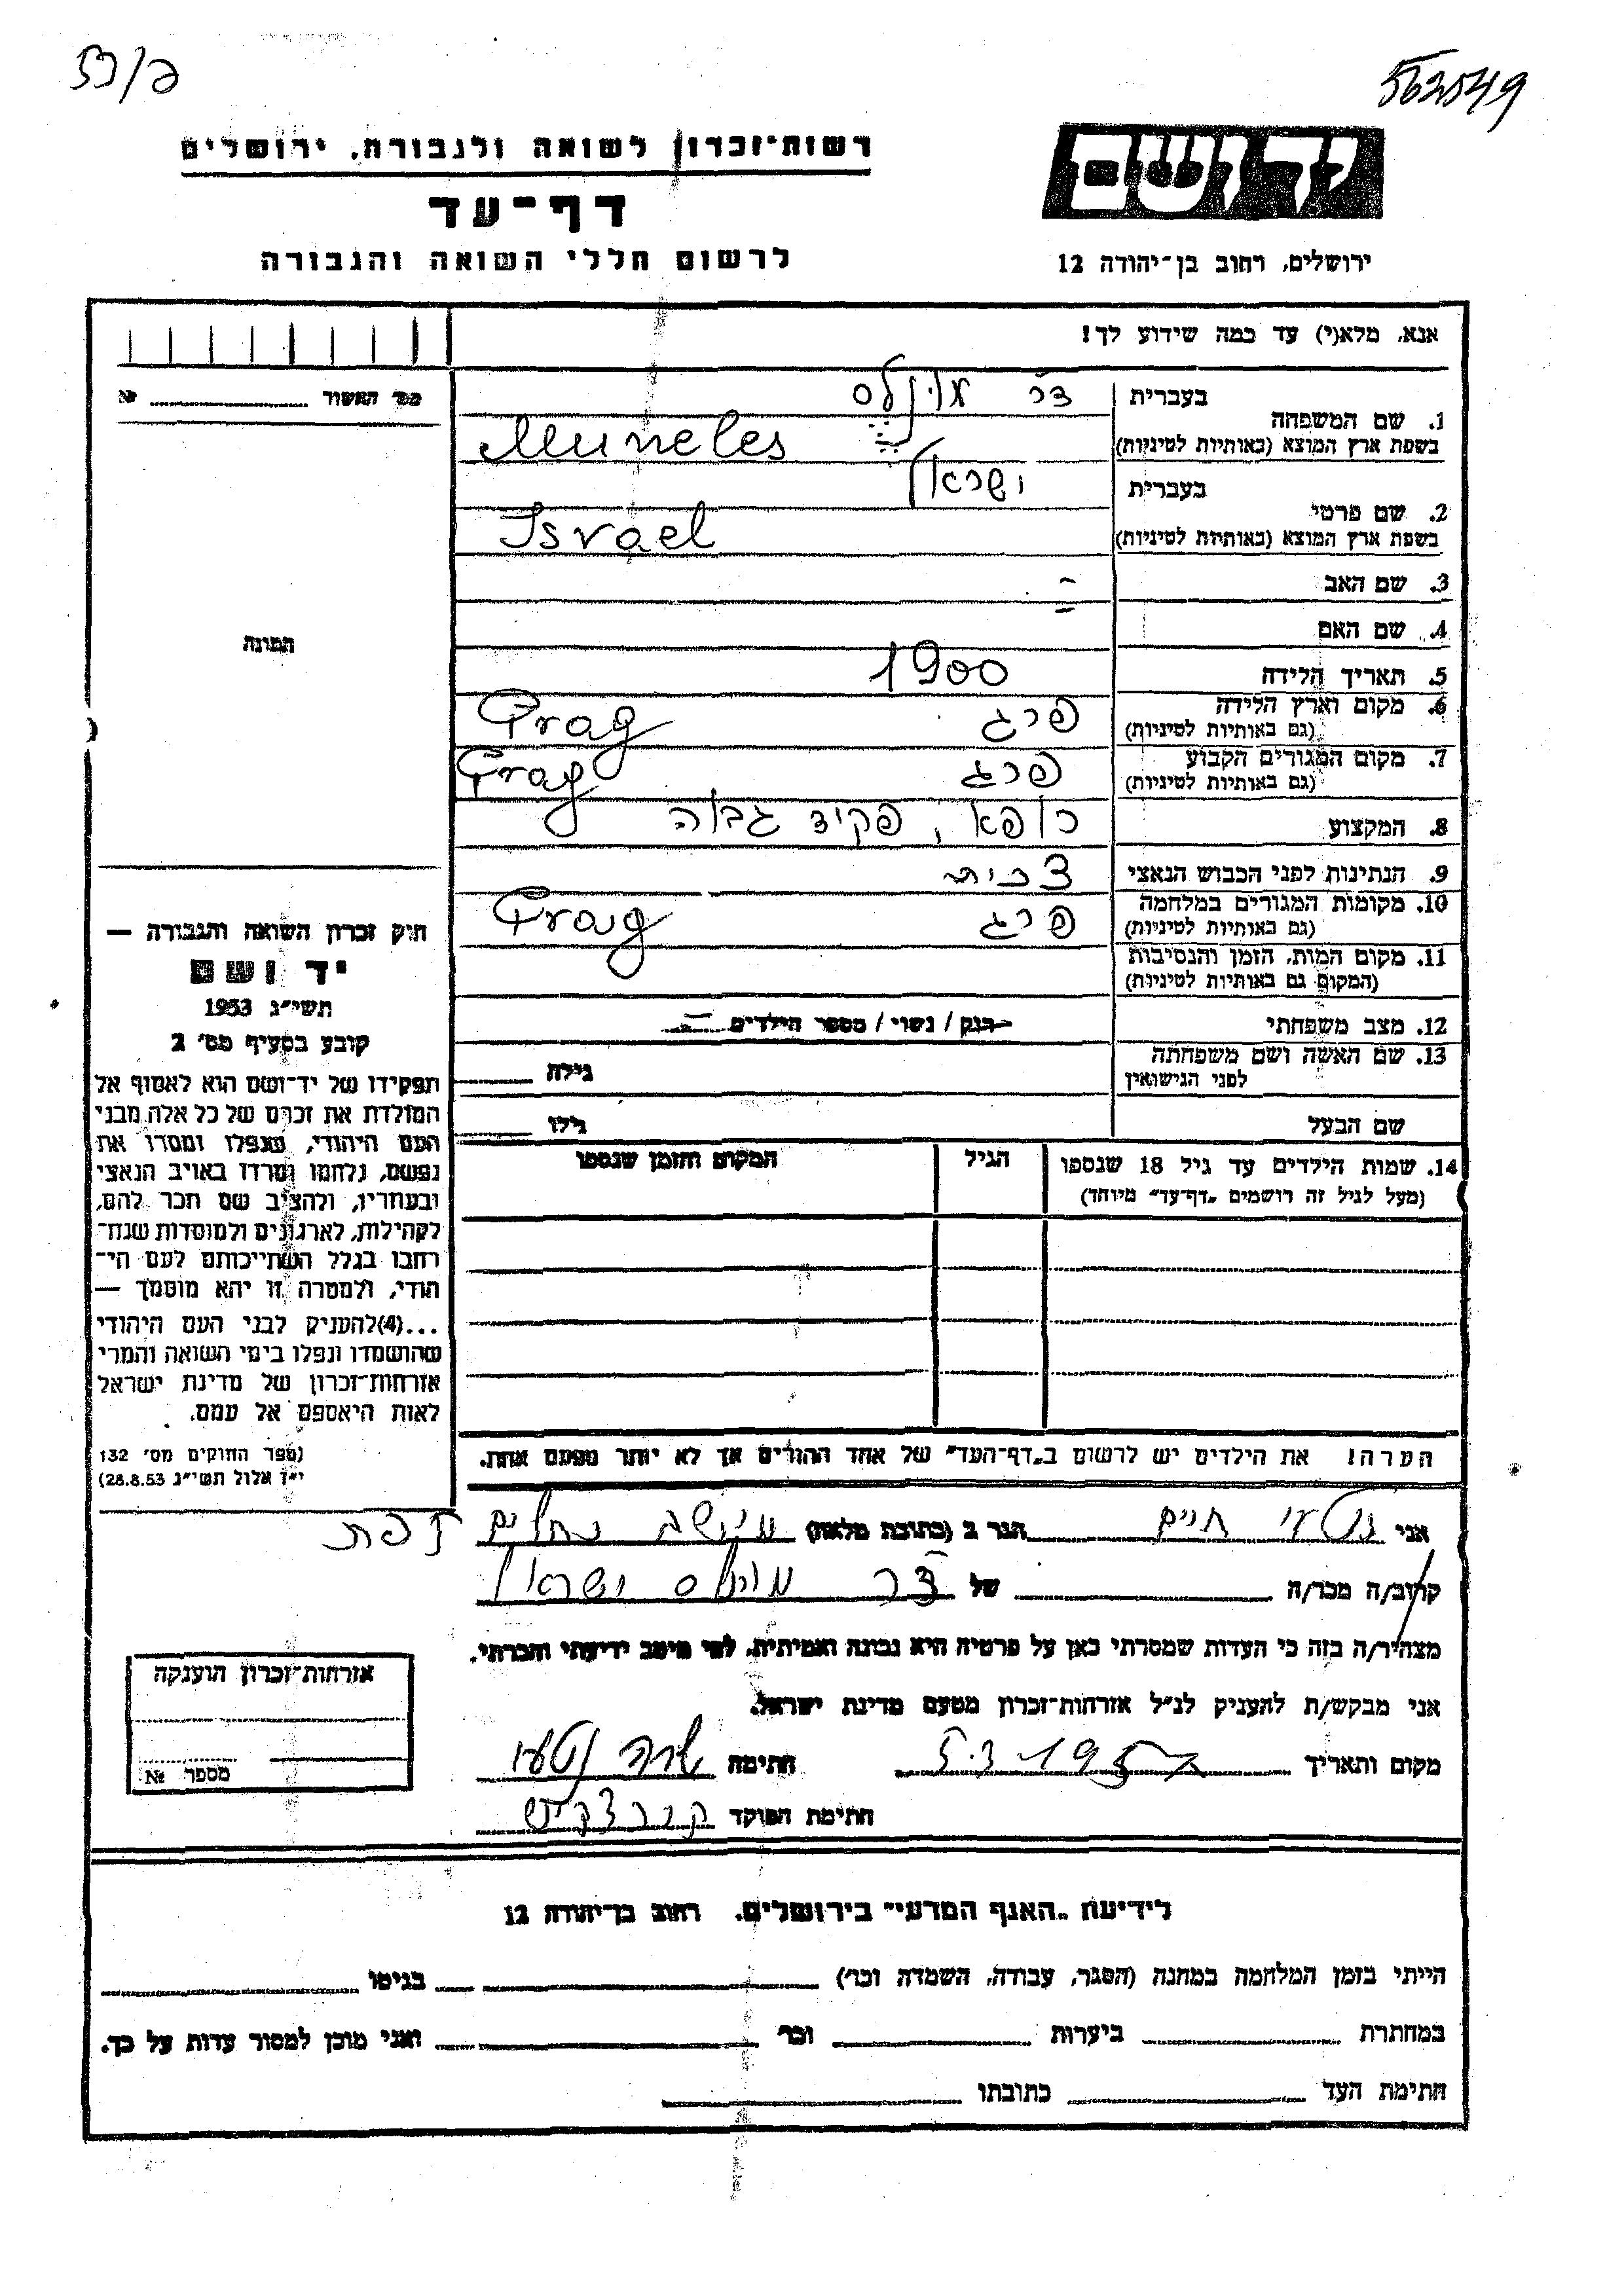 562549
יד ושם
ירושלים, רחוב בן־יהודה 12
רשות־זכרון לשואה ולגבורה, ירושלים
דף־עד
לרשום חללי השואה והגבורה
אנא, מלא(י) עד כמה שידוע לך!
בעברית ד״ר מונלס
1. שם המשפחה
בשפת ארץ המוצא (באותיות לטיניות) Muneles
בעברית ישראל
2. שם פרטי
בשפת ארץ המוצא (באותיות לטיניות) Israel
3. שם האב -
4. שם האם -
5. תאריך הלידה 1900
6. מקום וארץ הלידה פרג Prag
(גם באותיות לטיניות)
7. מקום המגורים הקבוע פרג Prag
(גם באותיות לטיניות)
8. המקצוע רופא, פקיד גבוה
9. הנתינות לפני הכבוש הנאצי צכית
10. מקומות המגורים במלחמה פרג Prag
(גם באותיות לטיניות)
11. מקום המות, הזמן והנסיבות
(המקום גם באותיות לטיניות)
12. מצב משפחתי רוק / נשוי / מספר הילדים
13. שם האשה ושם משפחתה גילה
לפני הנישואין
שם הבעל גילו
14. שמות הילדים עד גיל 18 שנספו הגיל המקום והזמן שנספו
(מעל לגיל זה רושמים „דף־עד״ מיוחד)
הערה! את הילדים יש לרשום ב„דף־העד״ של אחד ההורים אך לא יותר מפעם אחת.
מס׳ האשור №
תמונה
חוק זכרון השואה והגבורה —
יד ושם
תשי״ג 1953
קובע בסעיף מס׳ 2
תפקידו של יד־ושם הוא לאסוף אל
המולדת את זכרם של כל אלה מבני
העם היהודי, שנפלו ומסרו את
נפשם, נלחמו ומרדו באויב הנאצי
ובעוזריו, ולהציב שם וזכר להם,
לקהילות, לארגונים ולמוסדות שנח־
רבו בגלל השתייכותם לעם הי־
הודי, ולמטרה זו יהא מוסמך —
...(4)להעניק לבני העם היהודי
שהושמדו ונפלו בימי השואה והמרי
אזרחות־זכרון של מדינת ישראל
לאות היאספם אל עמם.
(ספר החוקים מס׳ 132
י״ז אלול תשי״ג 28.8.53)
אני חיים הגר ב (כתובת מלאה) מושב
קרוב/ה מכר/ה של ד״ר מונלס ישראל
מצהיר/ה בזה כי העדות שמסרתי כאן על פרטיה היא נכונה ואמיתית, לפי מיטב ידיעתי והכרתי.
אני מבקש/ת להעניק לנ״ל אזרחות־זכרון מטעם מדינת ישראל.
מקום ותאריך חתימה שרה
חתימת הפוקד
אזרחות־זכרון הוענקה
מספר №
לידיעת „האגף המדעי״ בירושלים, רחוב בן־יהודה 12
הייתי בזמן המלחמה במחנה (הסגר, עבודה, השמדה וכר׳) בגיטו
במחתרת ביערות וכר׳ ואני מוכן למסור עדות על כך.
חתימת העד כתובתו